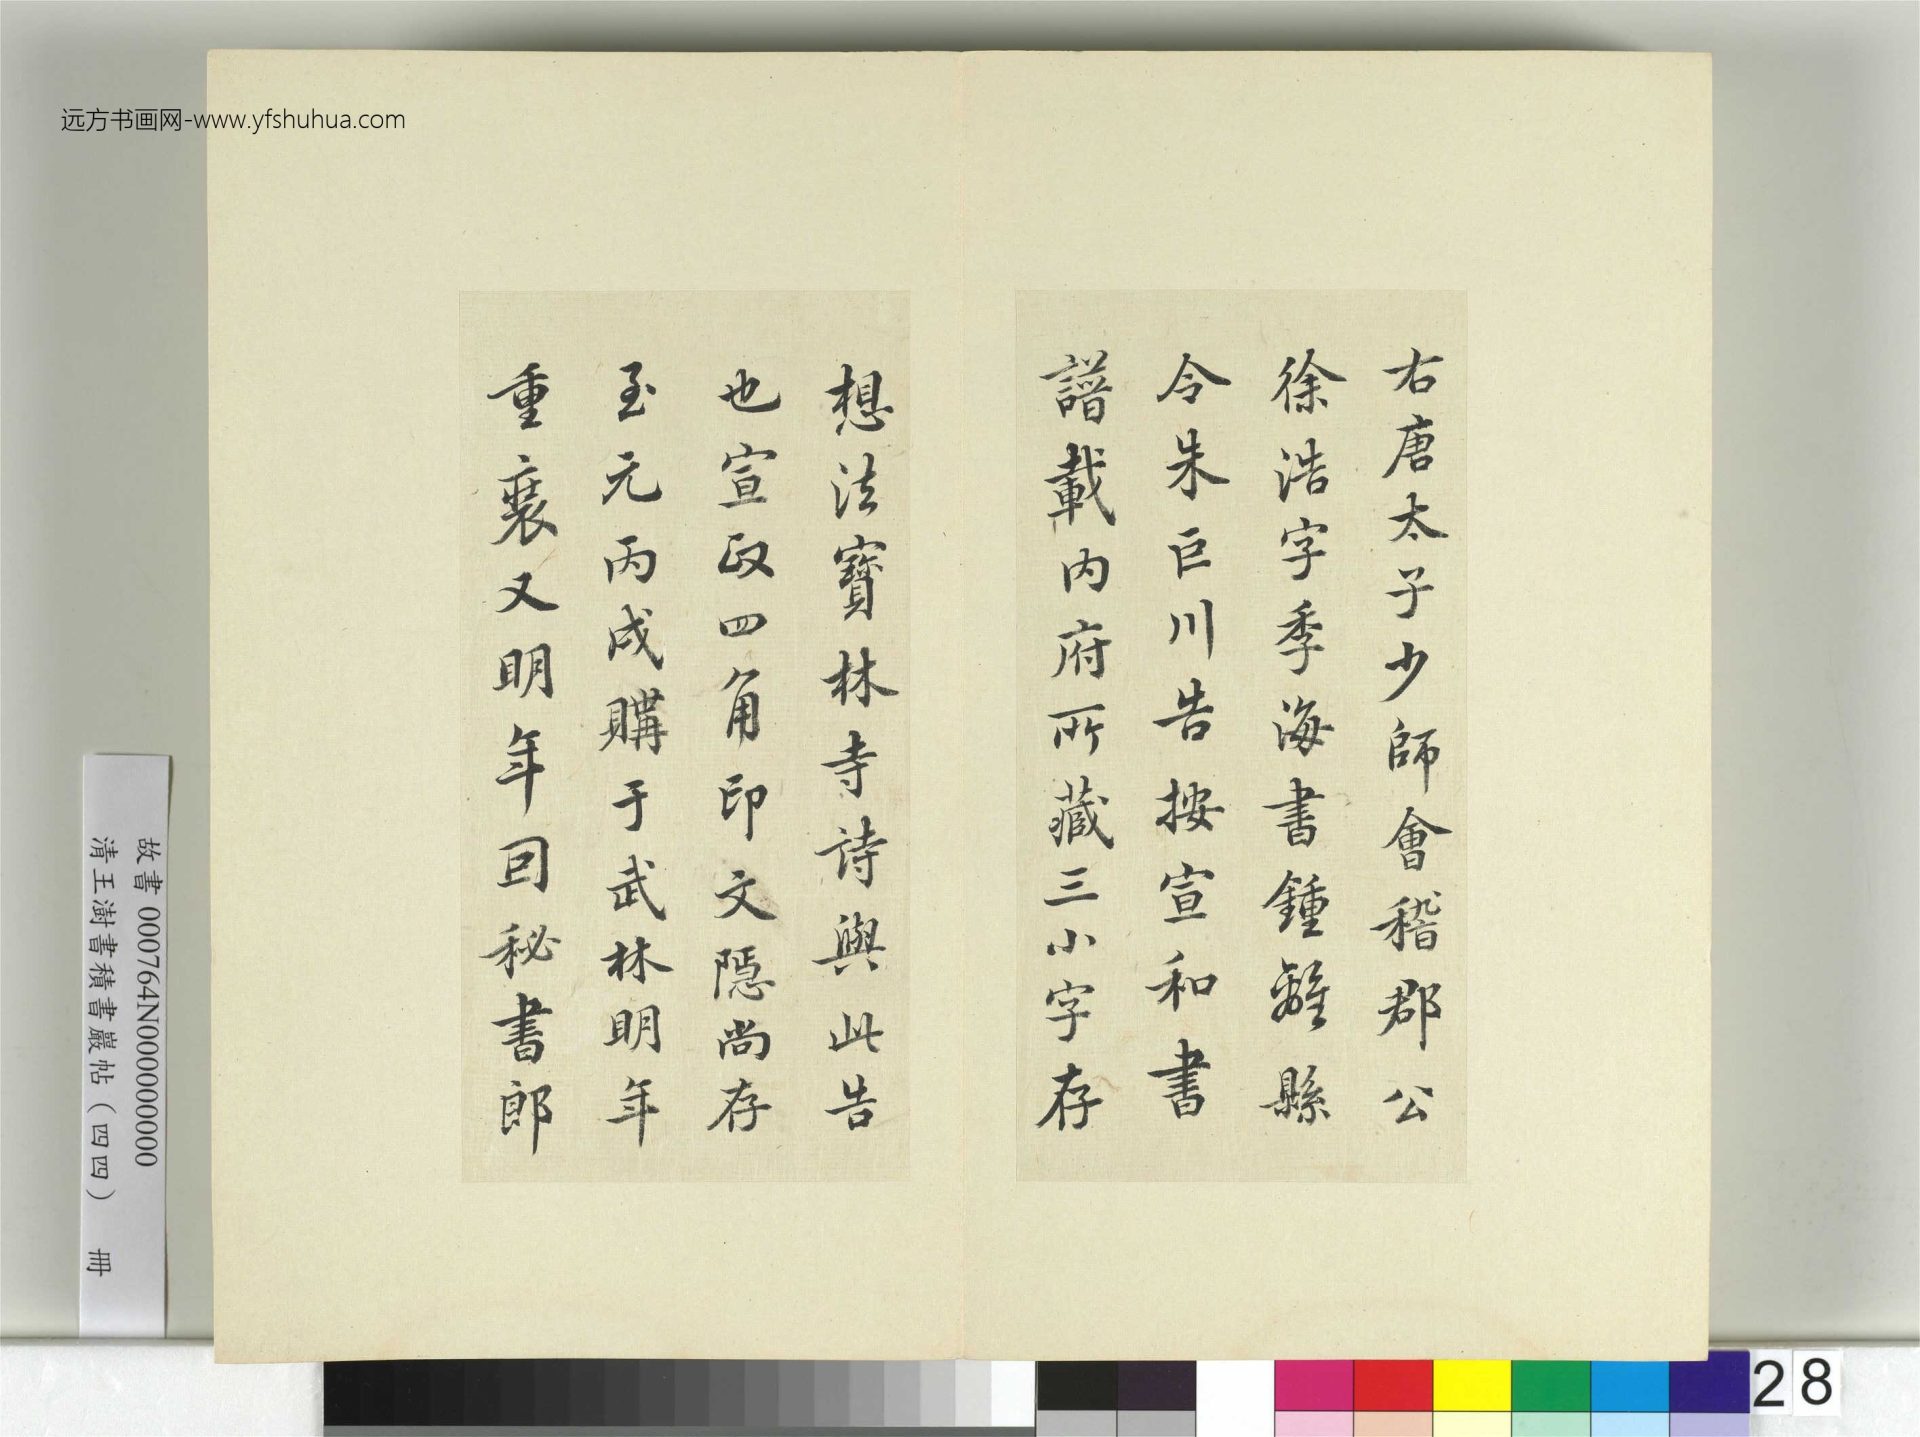 远方书画网-www.yfshuhua.com
右唐太子少師會稽郡公
徐浩字季海書鍾離縣
令朱巨川告按宣和書
譜載內府所藏三小字存
想法寶林寺詩與此告
也宣政四角印文隱尚存
至元丙戌購于武林明年
重裝又明年同秘書郎
故書 000764N000000000
清王澍書積書巖帖（四四） 冊
28